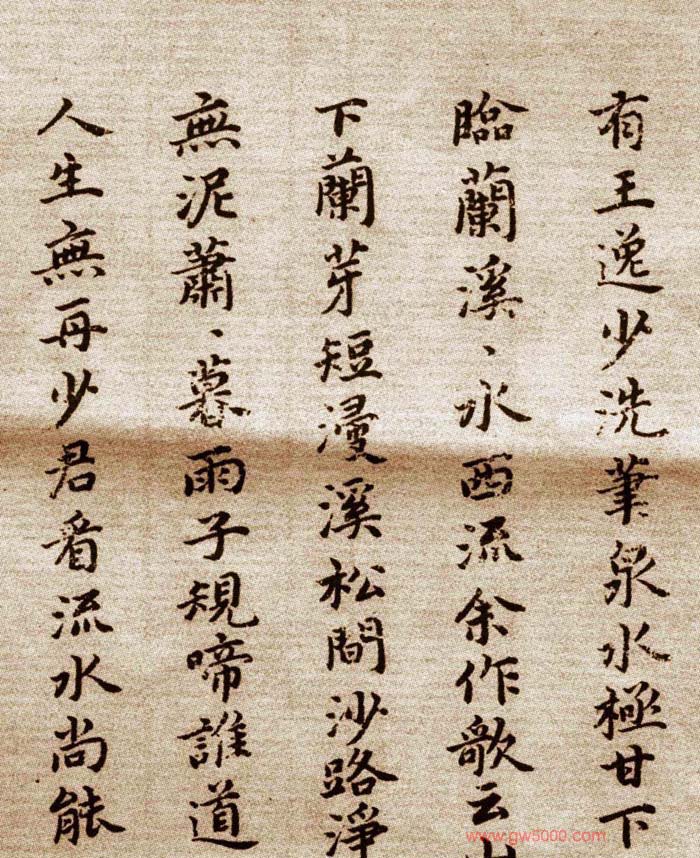 有王逸少洗筆泉水極甘下
臨蘭溪、水西流余作歌云
下蘭芽短漫溪松間沙路淨
無泥蕭、暮雨子規啼誰道
人生無再少君看流水尚能
www.gw5000.com